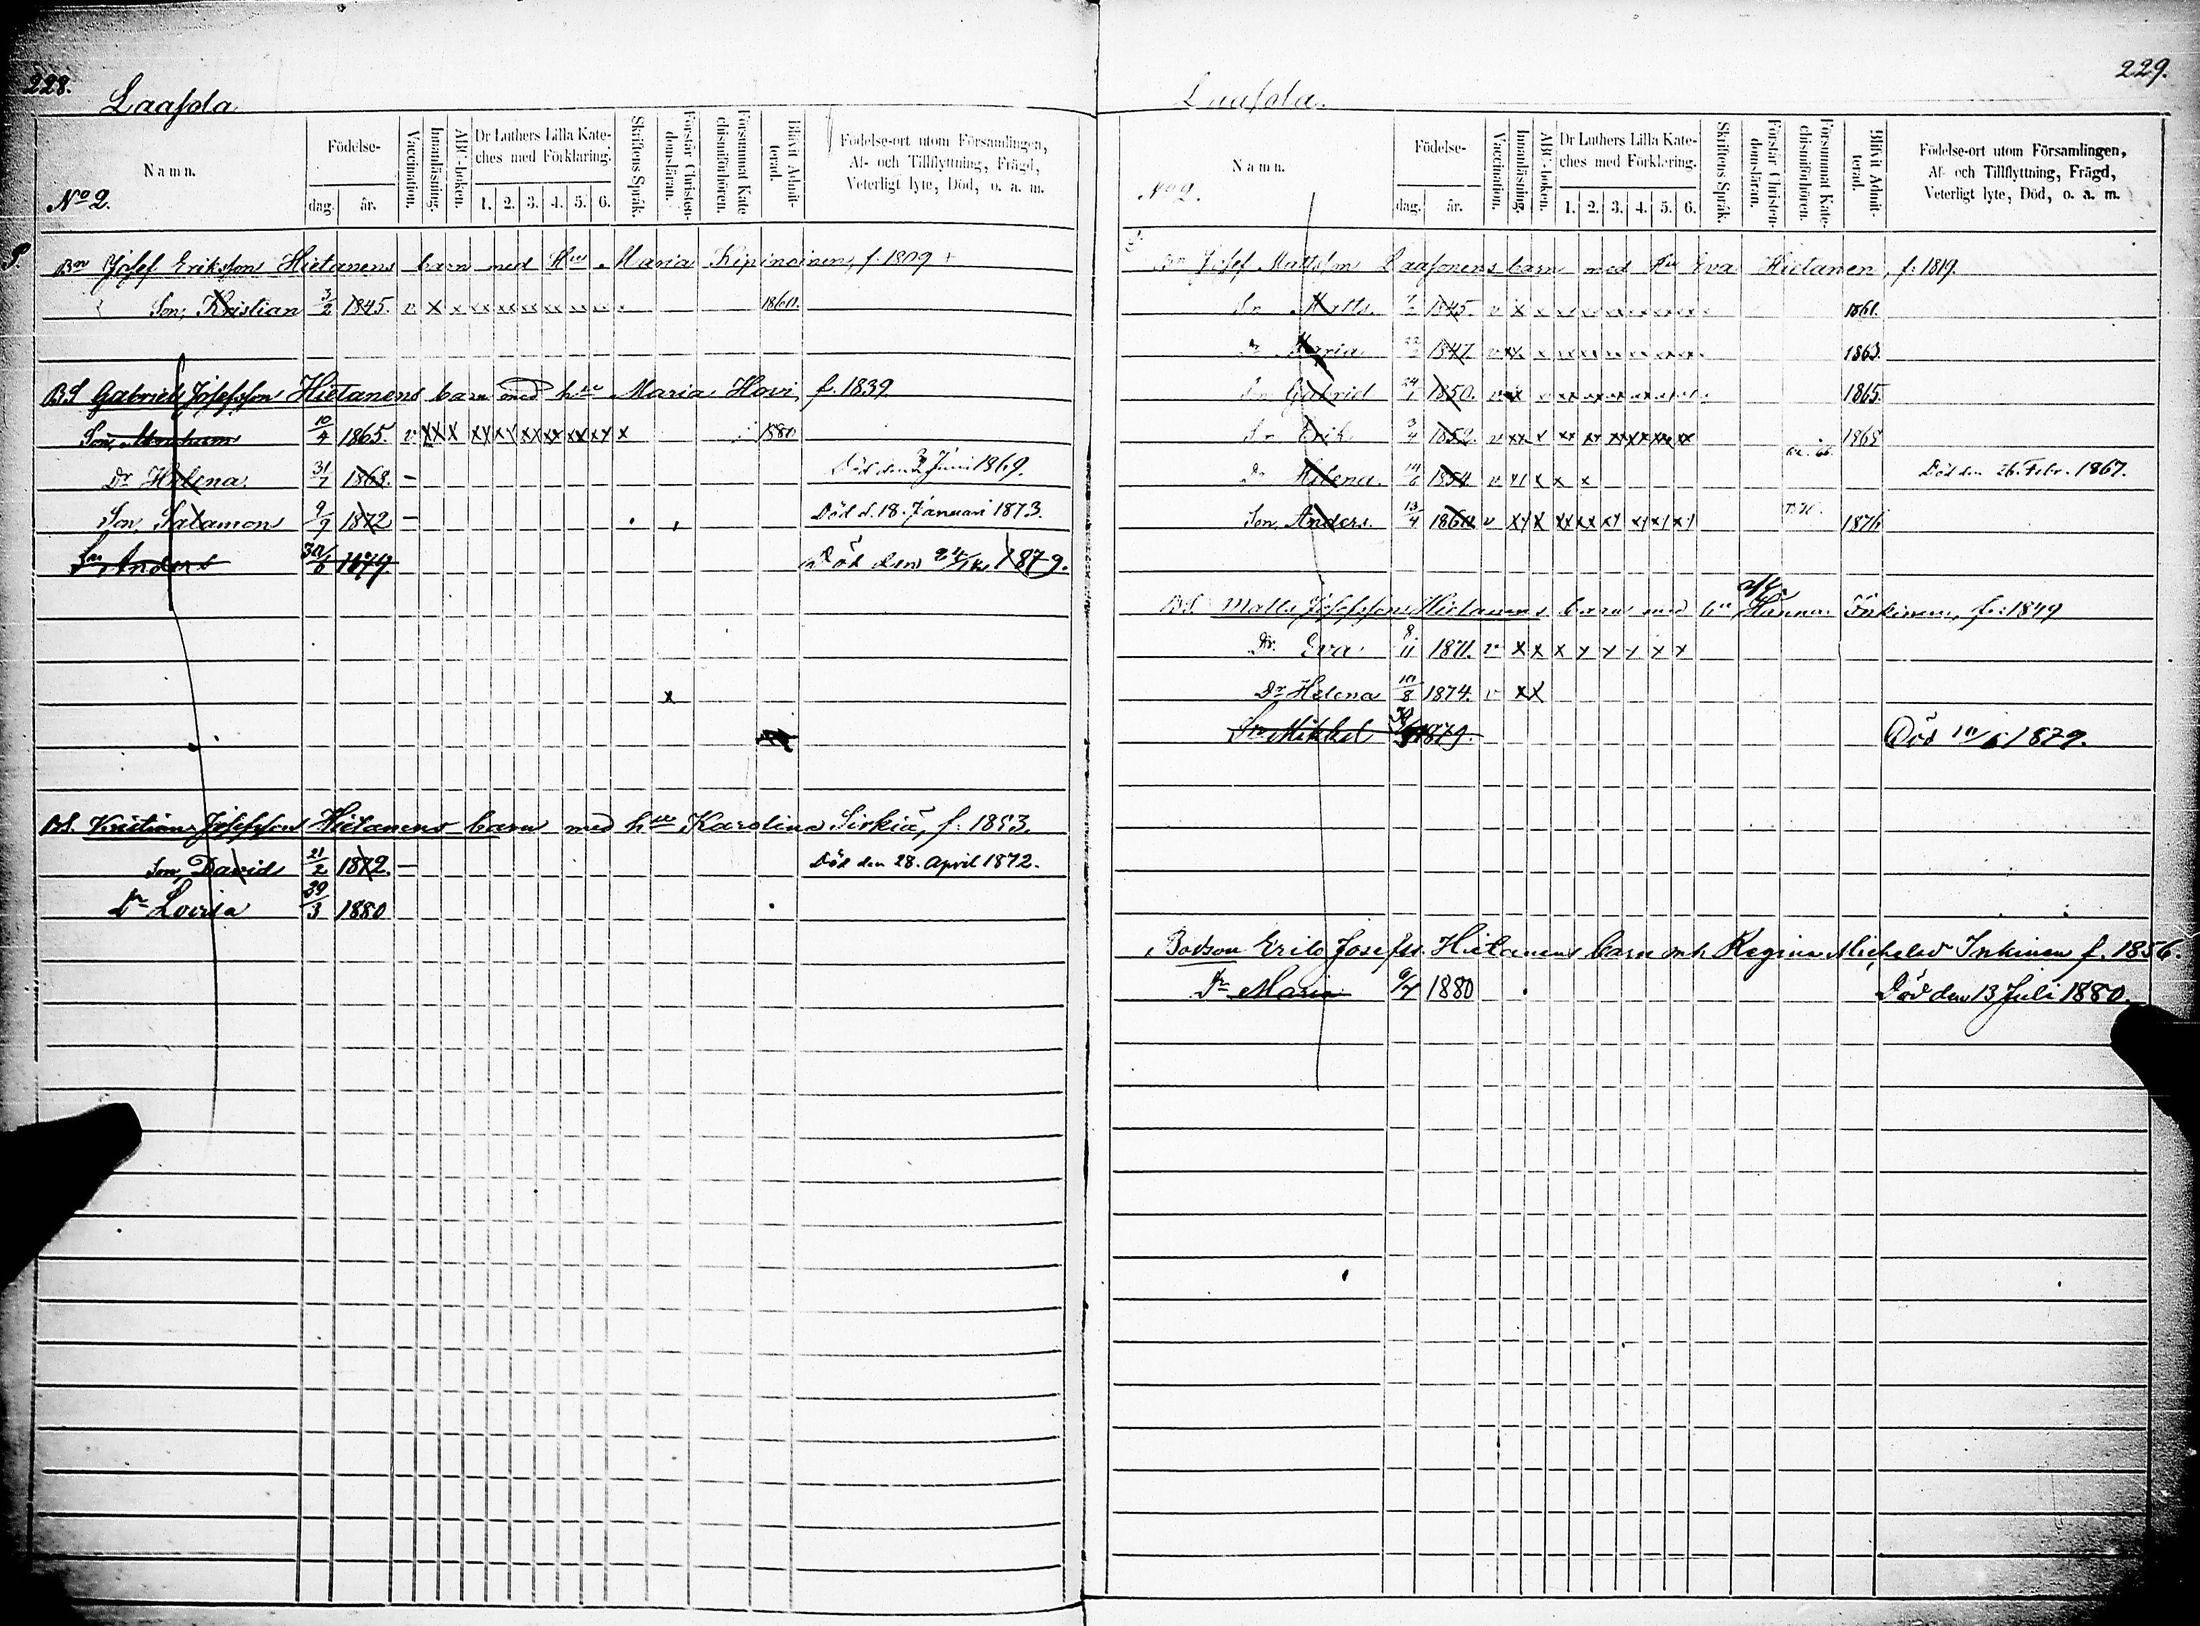 228.
Laasola
Namn.
No 2.
Födelse-
dag. år.
Vaccination.
Innanläsning.
ABC-boken.
Dr Luthers Lilla Kate-
ches med Förklaring.
1. 2. 3. 4. 5. 6.
Skriftens Språk.
Förstår Christen-
domsläran.
Försummat Kate-
chismiförhören.
Blifvit Admit-
terad.
Födelse-ort utom Församlingen,
Af- och Tillflyttning, Frägd,
Veterligt lyte, Död, o. a. m.
Bn Josef Eriksson Hietanens barn med Hu Maria Kipinoinen, f. 1809 +
Son, Kristian 3/2 1845. v x x xx xx xx xx xx xx 1860.
BS Gabriel Josefsson Hietanens barn med hu Maria Hovi, f. 1839
Son, Abraham 10/4 1865. v xx x xx xx xx xx xx xx x 1880
Dr Helena 31/7 1868. – Död den Juni 1869.
Son, Salamon 9/9 1872 – Död d. 18. Januari 1873.
Sn Anders 30/6 1879. Död den 24/12 1879.
x
BS. Kristian Josefsson Hietanens barn med hu Karolina Sirkiä, f. 1853.
Son, David 21/2 1872. – Död den 28. April 1872.
Dr Lovisa 29/3 1880
229.
Laasola.
Namn.
No 2.
Födelse-
dag. år.
Vaccination.
Innanläsning.
ABC-boken.
Dr Luthers Lilla Kate-
ches med Förklaring.
1. 2. 3. 4. 5. 6.
Skriftens Språk.
Förstår Christen-
domsläran.
Försummat Kate-
chismiförhören.
Blifvit Admit-
terad.
Födelse-ort utom Församlingen,
Af- och Tillflyttning, Frägd,
Veterligt lyte, Död, o. a. m.
Bn Josef Mattsson Laasonens barn med Hu Eva Hietanen, f. 1819.
Sn Matts 1845. v x x xx xx xx xx xx xx 1861.
Dr Maria 1847. v xx x xx xx xx xx xx xx 1863.
Sn Gabriel 24/1 1850. v xx x xx xx xx xx xx xx 1865.
Sn Erik 3/4 1852. v xx x xx xx xx xx xx xx 1868
Dr Helena 14/6 1854 v x x x x Död den 26. Febr. 1867.
Son, Anders 13/4 1860 v xx x xx xx xx xx xx xx 1876
BS. Matts Josefsson Hietanens barn med hu Hanna Inkinen, f. 1849
Dr. Eva 8/11 1871. v x x x x x x x x
Dr Helena 10/8 1874. v xx
Sn Mikkel 1879. Död 10/6 1879.
Bodson Erik Josefss. Hietanens barn mh Regina Michelsd Inkinen f. 1856.
Dr Maria 9/7 1880 Död den 13 Juli 1880.